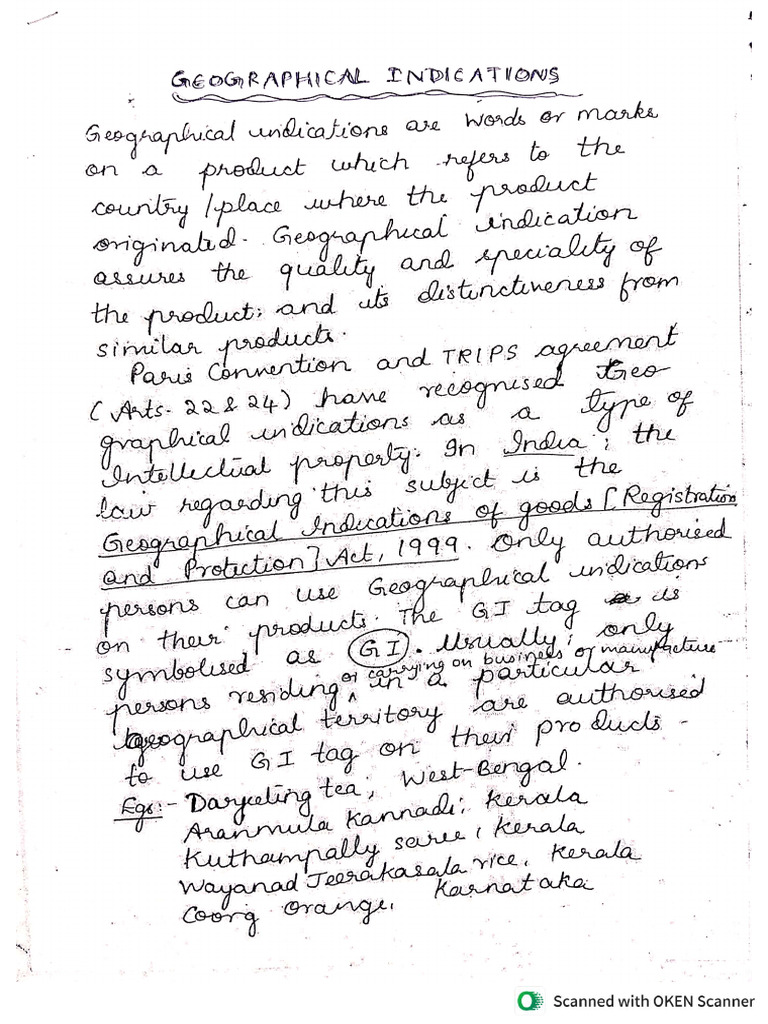 GEOGRAPHICAL INDICATIONS
Geographical indications are words or marks
on a product which refers to the
country/place where the product
originated. Geographical indication
assures the quality and speciality of
the product; and its distinctiveness from
similar products.
Paris Convention and TRIPS agreement
(Arts. 22 & 24) have recognised Geo
graphical indications as a type of
Intellectual property. In India, the
law regarding this subject is the
Geographical Indications of goods [Registration
and Protection] Act, 1999. Only authorised
persons can use Geographical indications
on their products. The GI tag is
symbolised as GI. Usually, only
persons residing or carrying on business or manufacture in a particular
geographical territory are authorised
to use GI tag on their products -
Egs:- Darjeeling tea, West-Bengal.
Aranmula Kannadi, Kerala
Kuthampally saree, Kerala
Wayanad Jeerakasala rice, Kerala
Coorg Orange, Karnataka
Scanned with OKEN Scanner